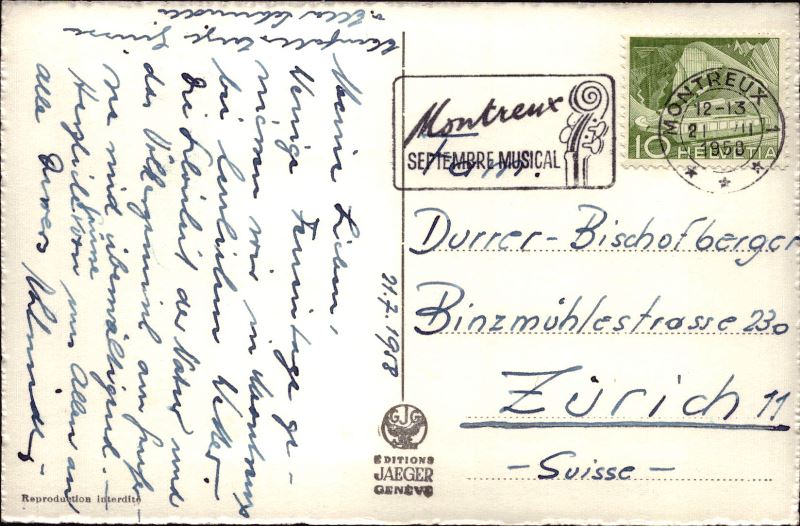 Meine Lieben,
Wenige Ferientage ge-
niessen wir in Montreux
bei herrlichem Wetter.
Die Schönheit der Natur und
das Völkergemisch am
sind überwältigend. –
Herzliche Grüsse von Allen an
alle Durrers
Grüsse
21.7.1958
Montreux
SEPTEMBRE MUSICAL
MONTREUX 1
12-13
21. VII
1958
10 HELVETIA
Fam.
Durrer-Bischofberger
Binzmühlestrasse 230
Zürich 11
-Suisse-
GJG
EDITIONS
JAEGER
GENÈVE
Reproduction interdite